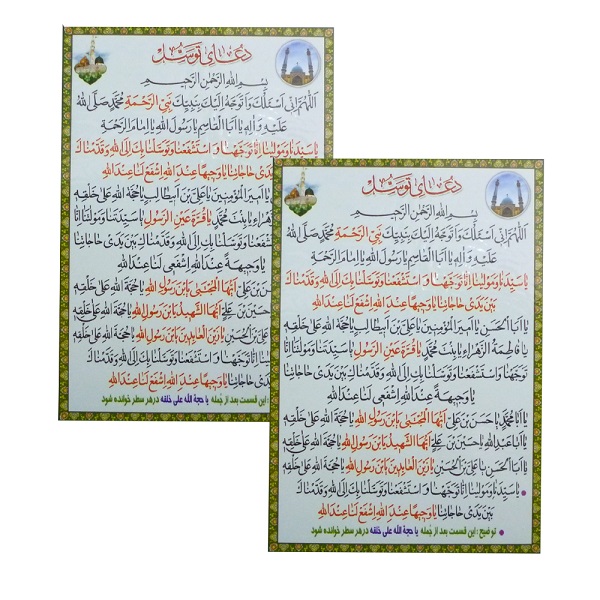 دعای توسل
بِسْمِ اللهِ الرَّحْمٰنِ الرَّحیمِ
اَللّٰهُمَّ اِنّی اَسْئَلُكَ وَ اَتَوَجَّهُ اِلَیْكَ بِنَبِیِّكَ نَبِیِّ الرَّحْمَةِ مُحَمَّدٍ صَلَّی اللهُ
عَلَیْهِ وَ الِهِ یا اَبَا الْقاسِمِ یا رَسُولَ اللهِ یا اِمامَ الرَّحْمَةِ
یا سَیِّدَنا وَ مَوْلینا اِنّا تَوَجَّهْنا وَ اسْتَشْفَعْنا وَ تَوَسَّلْنا بِكَ اِلَی اللهِ وَ قَدَّمْناكَ
حاجاتِنا یا وَجیهاً عِنْدَ اللهِ اِشْفَعْ لَنا عِنْدَ اللهِ
اَمیرَ الْمُؤْمِنینَ یا عَلِیَّ بْنَ اَبیطالِبٍ یا حُجَّةَ اللهِ عَلی خَلْقِهِ
الزَّهْراءُ یا بِنْتَ مُحَمَّدٍ یا قُرَّةَ عَیْنِ الرَّسُولِ یا سَیِّدَتَنا وَ مَوْلاتَنا اِنّا
وَ تَوَسَّلْنا بِكِ اِلَی اللهِ وَ قَدَّمْناكِ بَیْنَ یَدَیْ حاجاتِنا
یا وَجیهَةً عِنْدَ اللهِ اِشْفَعی لَنا عِنْدَ اللهِ
بْنَ عَلِیٍّ اَیُّهَا الْمُجْتَبی یَا بْنَ رَسُولِ اللهِ یا حُجَّةَ اللهِ عَلی خَلْقِهِ
بْنَ عَلِیٍّ اَیُّهَا الشَّهیدُ یَا بْنَ رَسُولِ اللهِ یا حُجَّةَ اللهِ عَلی خَلْقِهِ
بْنَ الْحُسَیْنِ یا زَیْنَ الْعابِدینَ یَا بْنَ رَسُولِ اللهِ یا حُجَّةَ اللهِ عَلی خَلْقِهِ
تَوَجَّهْنا وَ اسْتَشْفَعْنا وَ تَوَسَّلْنا بِكَ اِلَی اللهِ وَ قَدَّمْناكَ
حاجاتِنا یا وَجیهاً عِنْدَ اللهِ اِشْفَعْ لَنا عِنْدَ اللهِ
: این قسمت بعد از جمله یا حجة الله علی خلقه در هر سطر خوانده شود
دعای توسل
بِسْمِ اللهِ الرَّحْمٰنِ الرَّحیمِ
اَللّٰهُمَّ اِنّی اَسْئَلُكَ وَ اَتَوَجَّهُ اِلَیْكَ بِنَبِیِّكَ نَبِیِّ الرَّحْمَةِ مُحَمَّدٍ صَلَّی اللهُ
عَلَیْهِ وَ الِهِ یا اَبَا الْقاسِمِ یا رَسُولَ اللهِ یا اِمامَ الرَّحْمَةِ
یا سَیِّدَنا وَ مَوْلینا اِنّا تَوَجَّهْنا وَ اسْتَشْفَعْنا وَ تَوَسَّلْنا بِكَ اِلَی اللهِ وَ قَدَّمْناكَ
بَیْنَ یَدَیْ حاجاتِنا یا وَجیهاً عِنْدَ اللهِ اِشْفَعْ لَنا عِنْدَ اللهِ
یا اَبَا الْحَسَنِ یا اَمیرَ الْمُؤْمِنینَ یا عَلِیَّ بْنَ اَبیطالِبٍ یا حُجَّةَ اللهِ عَلی خَلْقِهِ
یا فاطِمَةُ الزَّهْراءُ یا بِنْتَ مُحَمَّدٍ یا قُرَّةَ عَیْنِ الرَّسُولِ یا سَیِّدَتَنا وَ مَوْلاتَنا اِنّا
تَوَجَّهْنا وَ اسْتَشْفَعْنا وَ تَوَسَّلْنا بِكِ اِلَی اللهِ وَ قَدَّمْناكِ بَیْنَ یَدَیْ حاجاتِنا
یا وَجیهَةً عِنْدَ اللهِ اِشْفَعی لَنا عِنْدَ اللهِ
یا اَبا مُحَمَّدٍ یا حَسَنَ بْنَ عَلِیٍّ اَیُّهَا الْمُجْتَبی یَا بْنَ رَسُولِ اللهِ یا حُجَّةَ اللهِ عَلی خَلْقِهِ
یا اَبا عَبْدِ اللهِ یا حُسَیْنَ بْنَ عَلِیٍّ اَیُّهَا الشَّهیدُ یَا بْنَ رَسُولِ اللهِ یا حُجَّةَ اللهِ عَلی خَلْقِهِ
یا اَبَا الْحَسَنِ یا عَلِیَّ بْنَ الْحُسَیْنِ یا زَیْنَ الْعابِدینَ یَا بْنَ رَسُولِ اللهِ یا حُجَّةَ اللهِ عَلی خَلْقِهِ
• یا سَیِّدَنا وَ مَوْلینا اِنّا تَوَجَّهْنا وَ اسْتَشْفَعْنا وَ تَوَسَّلْنا بِكَ اِلَی اللهِ وَ قَدَّمْناكَ
بَیْنَ یَدَیْ حاجاتِنا یا وَجیهاً عِنْدَ اللهِ اِشْفَعْ لَنا عِنْدَ اللهِ
• توضیح : این قسمت بعد از جمله یا حجة الله علی خلقه در هر سطر خوانده شود